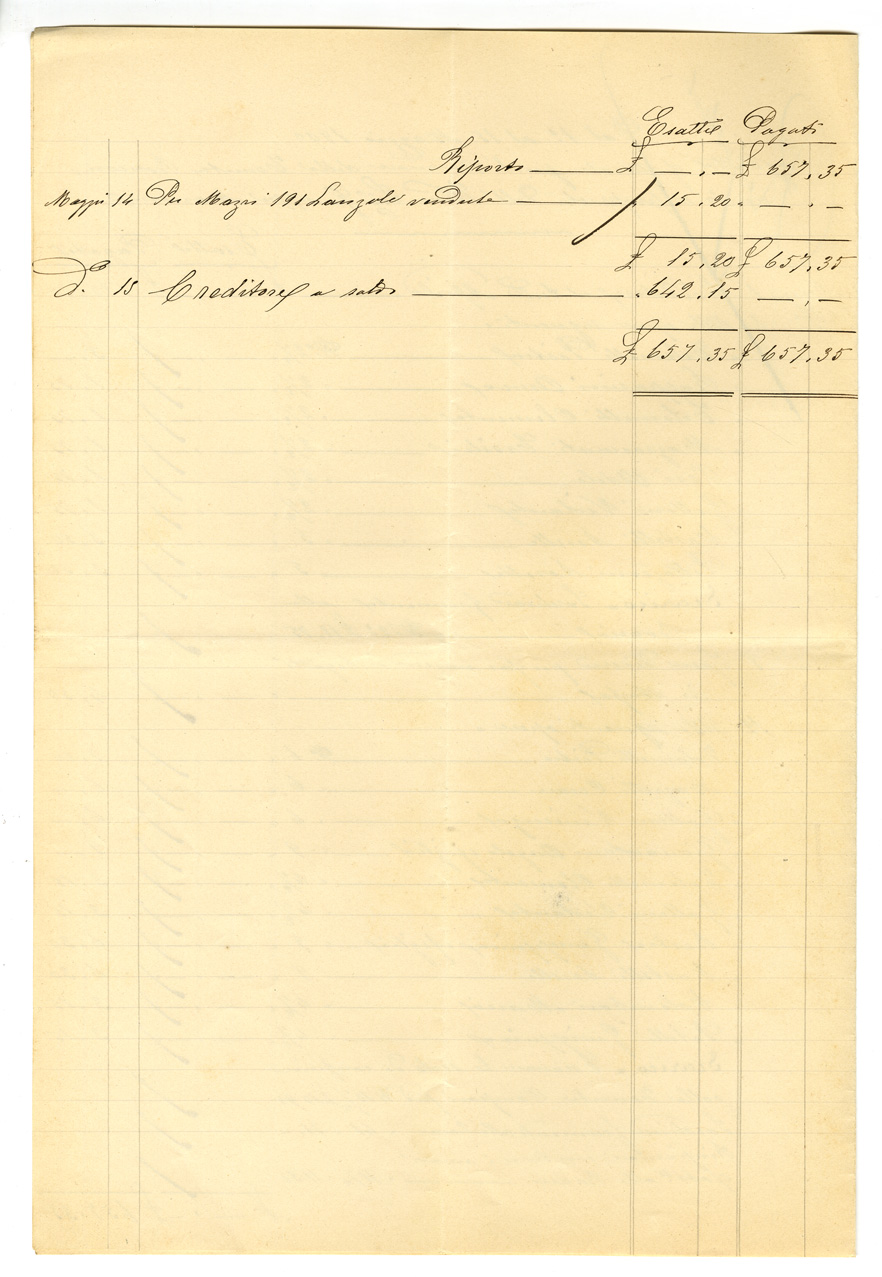 Esattè Pagati
Riporto £ — . — £ 657.35
14 Per Mazzi 191 vendute " 15.20 " — . —
£ 15.20 £ 657.35
Do 15 Creditore a saldo " 642.15 — . —
£ 657.35 £ 657.35